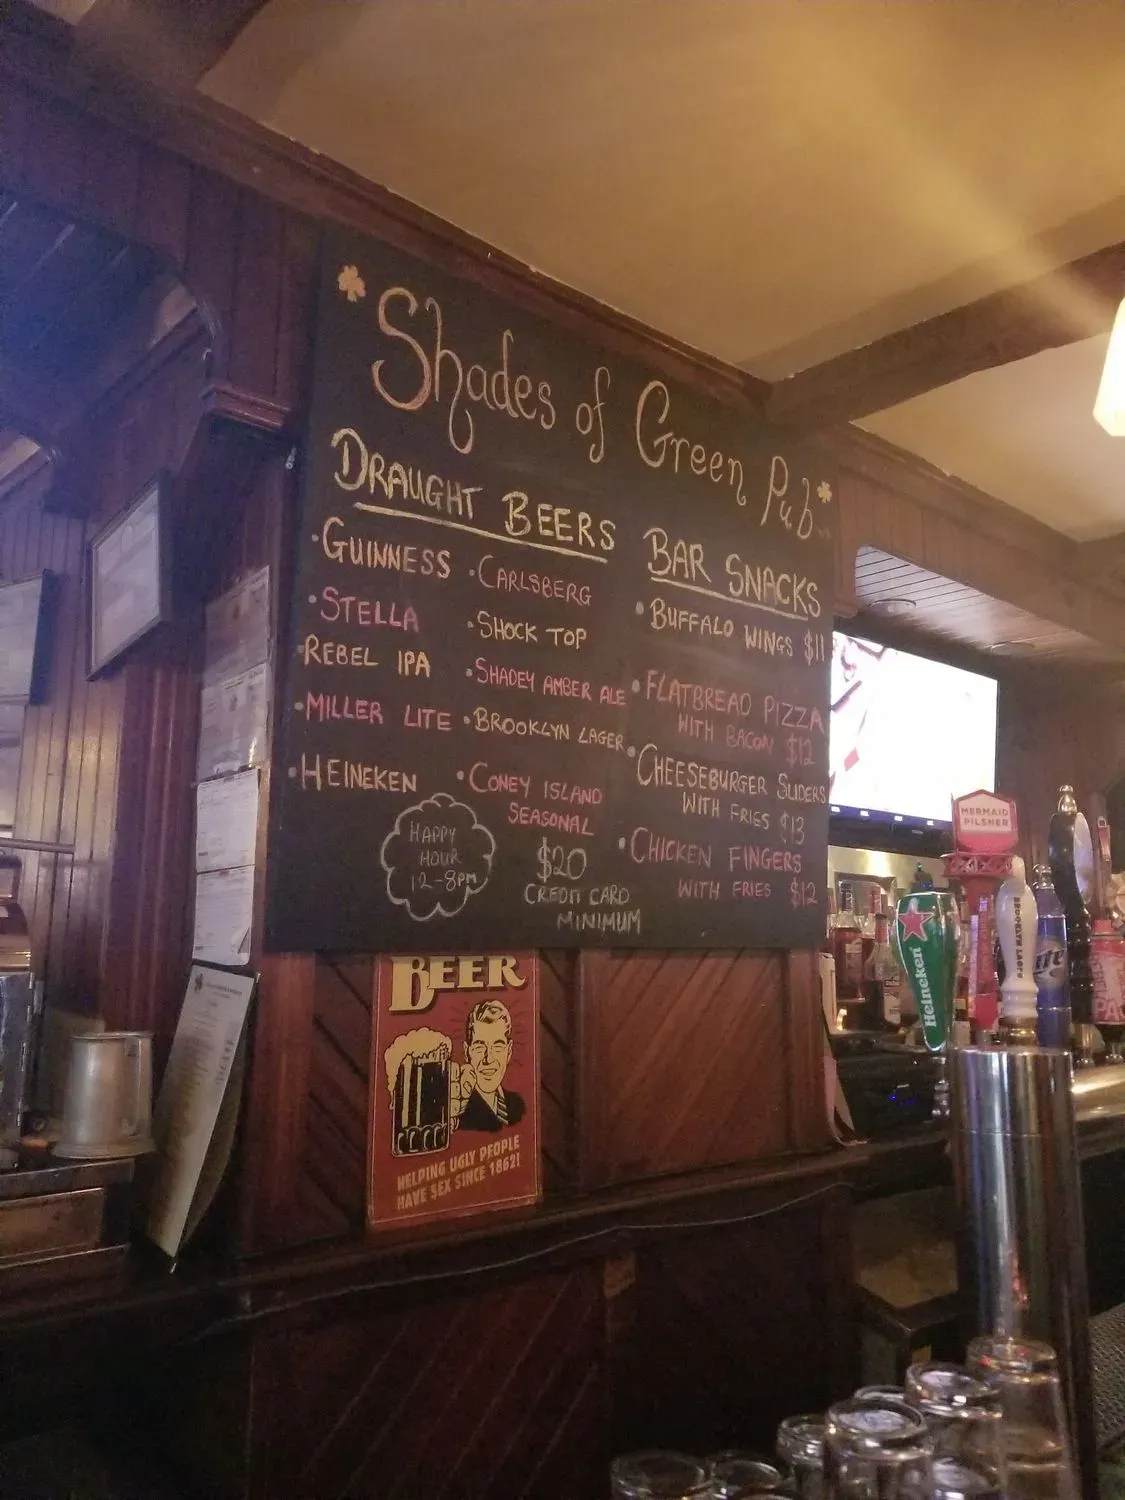 Shades of Green Pub
DRAUGHT BEERS
• GUINNESS
• STELLA
• REBEL IPA
• MILLER LITE
• HEINEKEN
• CARLSBERG
• SHOCK TOP
• SHADEY AMBER ALE
• BROOKLYN LAGER
• CONEY ISLAND
SEASONAL
HAPPY
HOUR
12-8PM
$20
CREDIT CARD
MINIMUM
BAR SNACKS
• BUFFALO WINGS $11
• FLATBREAD PIZZA
WITH BACON $12
• CHEESEBURGER SLIDERS
WITH FRIES $13
• CHICKEN FINGERS
WITH FRIES $12
BEER
HELPING UGLY PEOPLE
HAVE SEX SINCE 1862!
MERMAID
PILSNER
Heineken
BROOKLYN LAGER
Lite